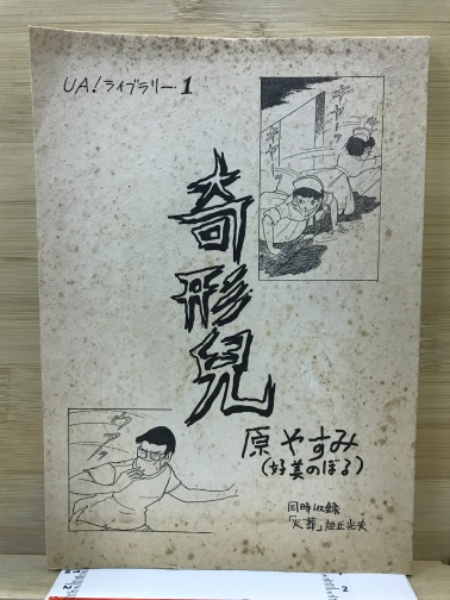 UA!ライブラリー・1
ギャ
ギャーッ
奇形兒
ウアァ
原やすみ
(好美のぼる)
同時収録
「火葬」旭丘光志